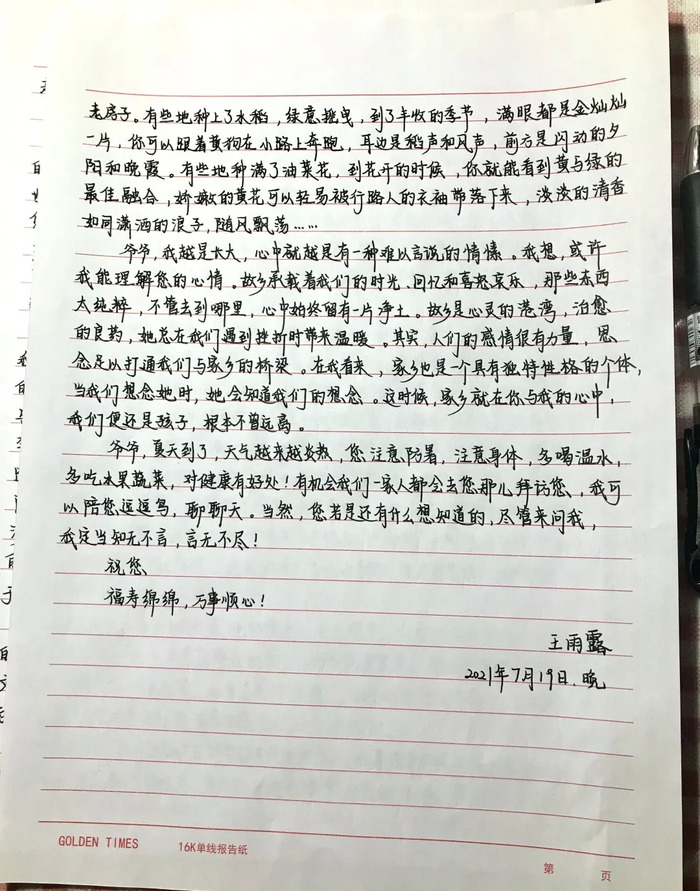 老房子。有些地种上了水稻，绿意摇曳，到了丰收的季节，满眼都是金灿灿
一片，你可以跟着黄狗在小路上奔跑，耳边是稻声和风声，前方是闪动的夕
阳和晚霞。有些地种满了油菜花，到花开的时候，你就能看到黄与绿的
最佳融合，娇嫩的黄花可以轻易被行路人的衣袖带落下来，淡淡的清香
如同潇洒的浪子，随风飘荡……
爷爷，我越是长大，心中就越是有一种难以言说的情愫。我想，或许
我能理解您的心情。故乡承载着我们的时光、回忆和喜怒哀乐，那些东西
太纯粹，不管去到哪里，心中始终留有一片净土。故乡是心灵的港湾，治愈
的良药，她总在我们遇到挫折时带来温暖。其实，人们的感情很有力量，思
念足以打通我们与家乡的桥梁。在我看来，家乡也是一个具有独特性格的个体，
当我们想念她时，她会知道我们的想念。这时候，家乡就在你与我的心中，
我们便还是孩子，根本不曾远离。
爷爷，夏天到了，天气越来越炎热，您注意防暑，注意身体，多喝温水，
多吃水果蔬菜，对健康有好处！有机会我们一家人都会去您那儿拜访您，我可
以陪您逗逗鸟，聊聊天。当然，您若是还有什么想知道的，尽管来问我，
我定当知无不言，言无不尽！
祝您
福寿绵绵，万事顺心！
王雨露
2021年7月19日.晚
GOLDEN TIMES 16K单线报告纸
第 页